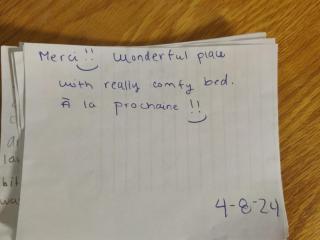 Merci!! Wonderful place
with really comfy bed.
À la prochaine!!
4-8-24